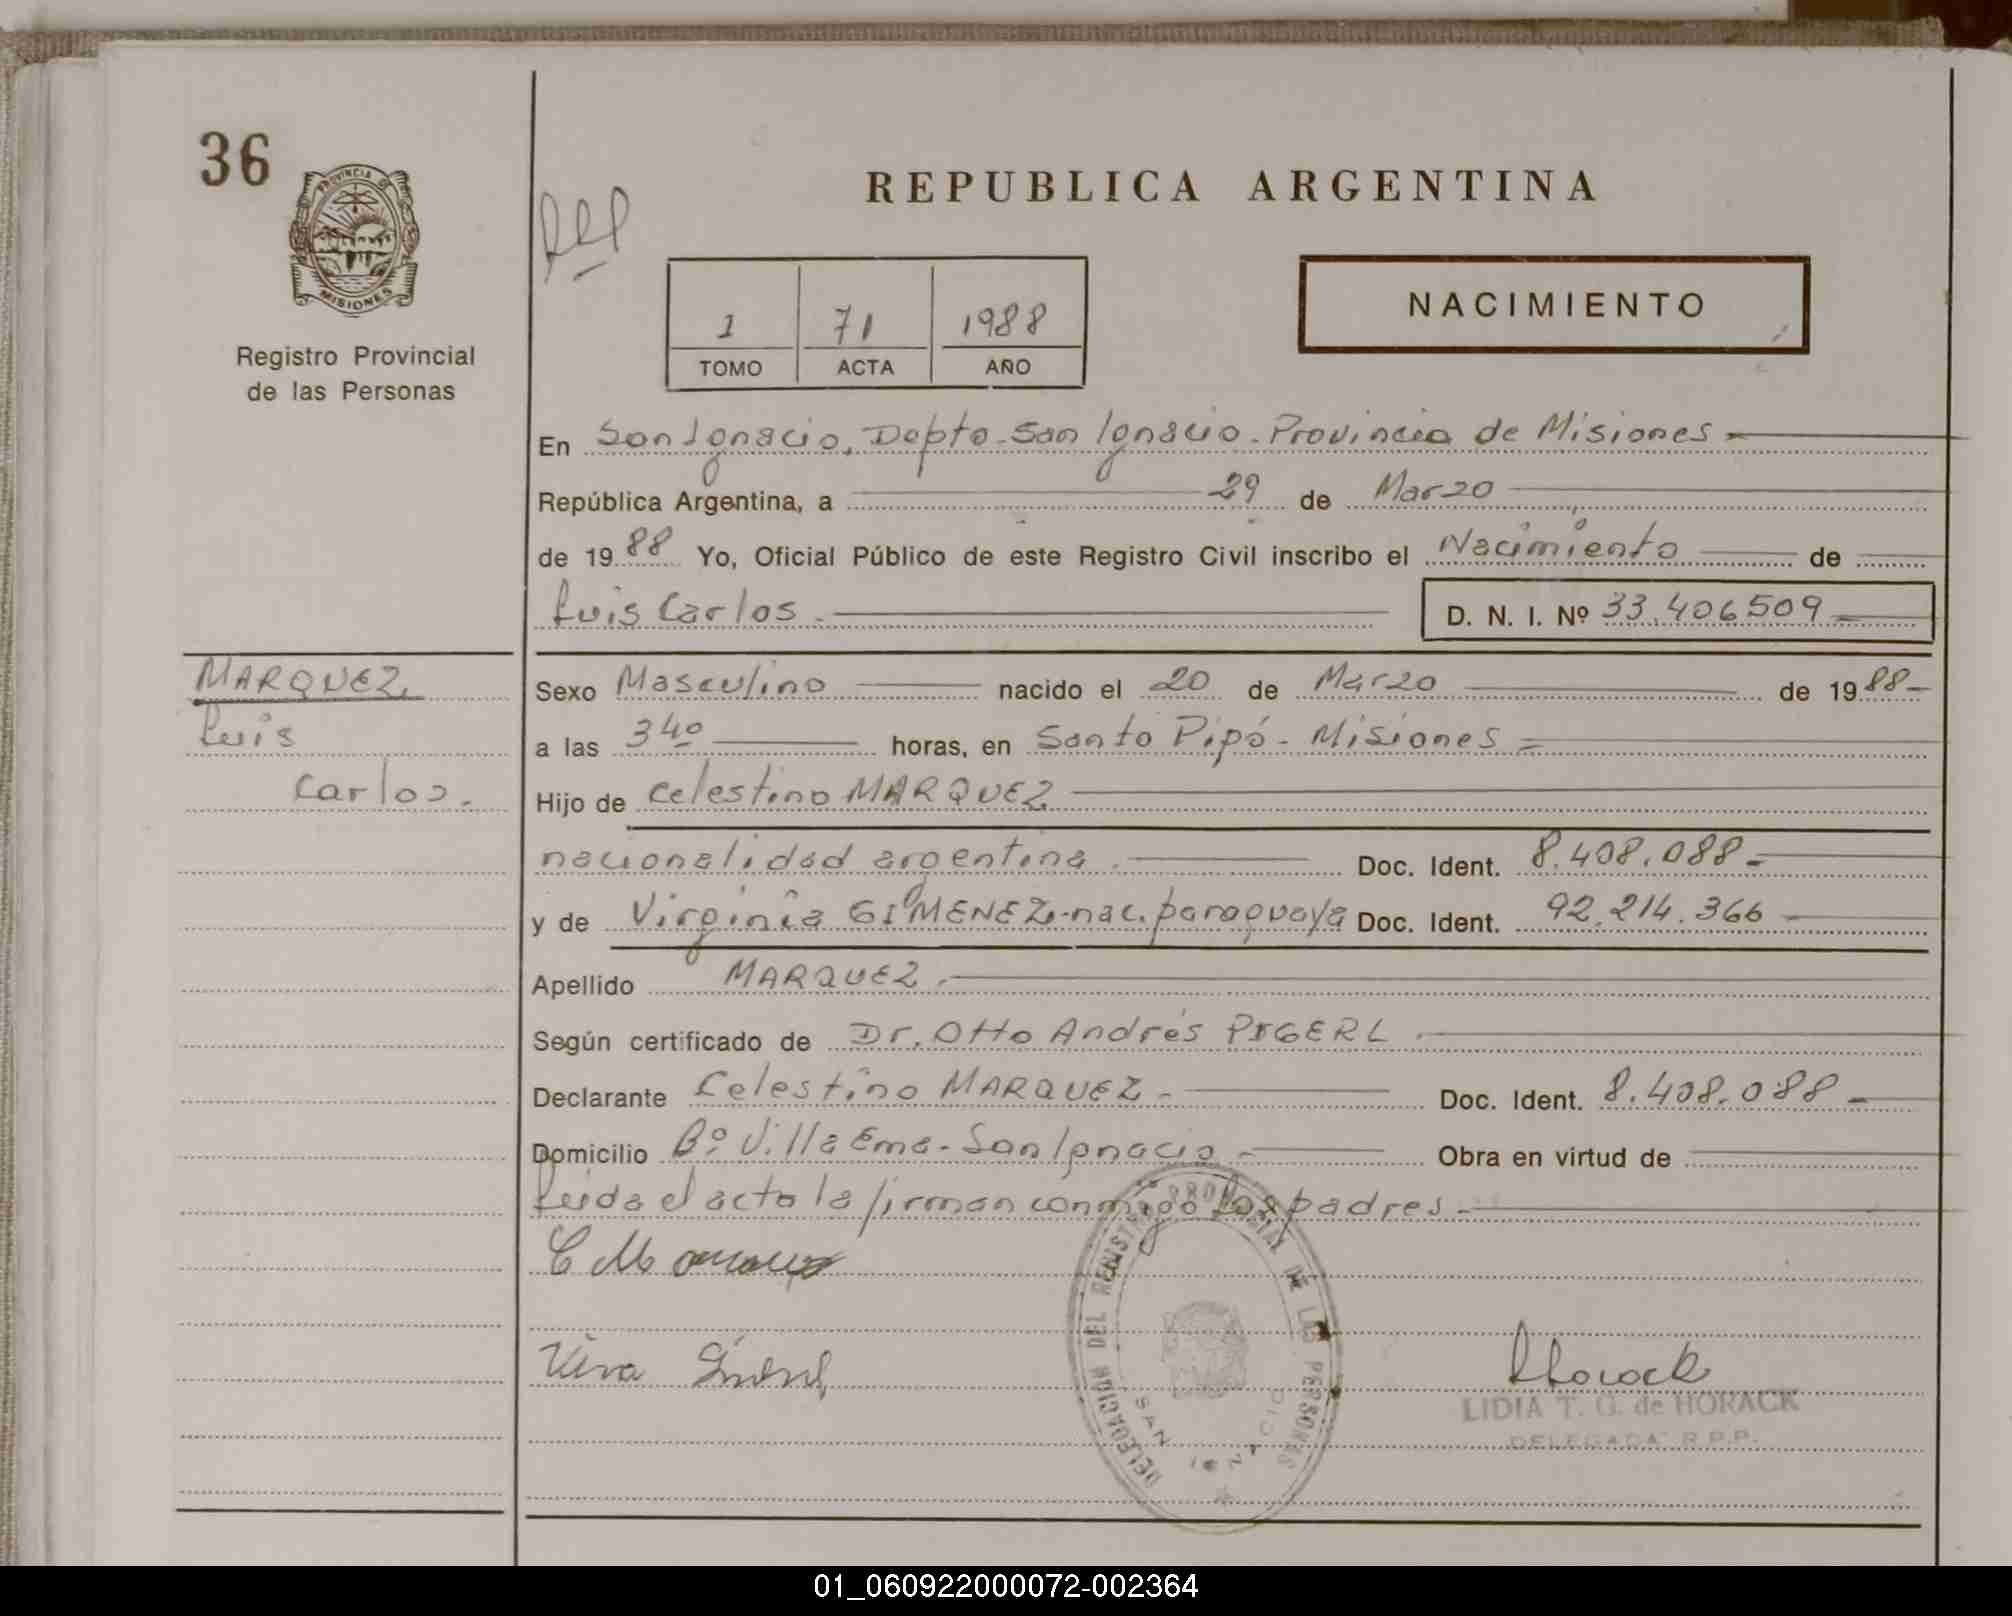 36
PROVINCIA DE
MISIONES
Registro Provincial
de las Personas
REPUBLICA ARGENTINA
1 71 1988
TOMO ACTA AÑO
NACIMIENTO
En San Ignacio, Depto. San Ignacio. Provincia de Misiones
República Argentina, a 29 de Marzo
de 1988 Yo, Oficial Público de este Registro Civil inscribo el Nacimiento de
Luis Carlos.
D. N. I. Nº 33.406509
MARQUEZ
Luis
Carlos.
Sexo Masculino nacido el 20 de Marzo de 1988
a las 340 horas, en Santo Pipó - Misiones
Hijo de Celestino MARQUEZ
nacionalidad argentina. Doc. Ident. 8.408.088
y de Virginia GIMENEZ-nac. paraguaya Doc. Ident. 92.214.366
Apellido MARQUEZ.
Según certificado de Dr. Otto Andrés PIGERL.
Declarante Celestino MARQUEZ - Doc. Ident. 8.408.088
Domicilio Bº Villa Ema - San Ignacio - Obra en virtud de
Leida el acta la firman conmigo los padres.
DELEGACION DEL REGISTRO PROVINCIAL DE LAS PERSONAS
SAN IGNACIO
LIDIA T. G. de HORACK
DELEGADA R.P.P.
01_060922000072-002364